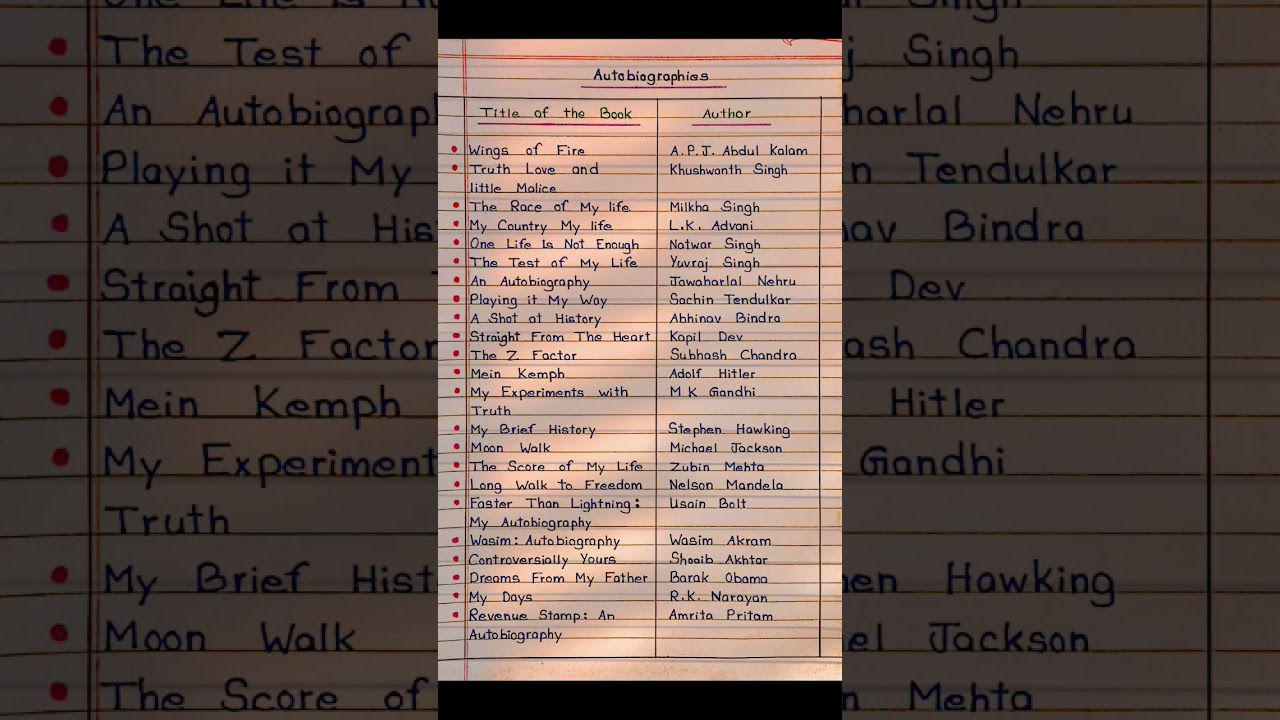 Autobiographies
Title of the Book Author
Wings of Fire A.P.J. Abdul Kalam
Truth Love and Khushwanth Singh
little Malice
The Race of My life Milkha Singh
My Country My life L.K. Advani
One Life Is Not Enough Natwar Singh
The Test of My Life Yuvraj Singh
An Autobiography Jawaharlal Nehru
Playing it My Way Sachin Tendulkar
A Shot at History Abhinav Bindra
Straight From The Heart Kapil Dev
The Z Factor Subhash Chandra
Mein Kemph Adolf Hitler
My Experiments with M K Gandhi
Truth
My Brief History Stephen Hawking
Moon Walk Michael Jackson
The Score of My Life Zubin Mehta
Long Walk to Freedom Nelson Mandela
Faster Than Lightning: Usain Bolt
My Autobiography
Wasim: Autobiography Wasim Akram
Controversially Yours Shoaib Akhtar
Dreams From My Father Barak Obama
My Days R.K. Narayan
Revenue Stamp: An Amrita Pritam
Autobiography